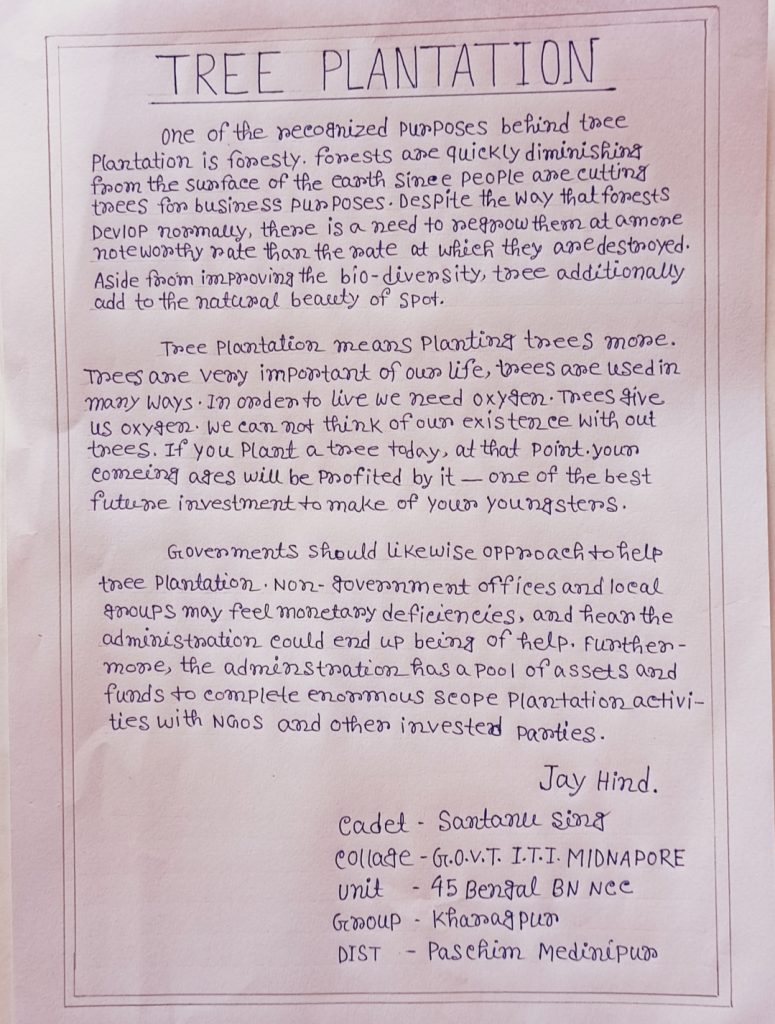 TREE PLANTATION
One of the recognized purposes behind tree
Plantation is foresty. forests are quickly diminishing
from the surface of the earth since people are cutting
trees for business purposes. Despite the way that forests
Devlop normally, there is a need to regrow them at a more
noteworthy rate than the rate at which they are destroyed.
Aside from improving the bio-diversity, tree additionally
add to the natural beauty of spot.
Tree Plantation means Planting trees more.
Trees are very important of our life, trees are used in
many ways. In order to live we need oxygen. Trees give
us oxygen. We can not think of our existence with out
trees. If you Plant a tree today, at that point. your
comeing ages will be profited by it — one of the best
future investment to make of your youngsters.
Goverments should likewise opproach to help
tree Plantation. Non-government offices and local
groups may feel monetary deficiencies, and hear the
administration could end up being of help. Further-
more, the adminstration has a pool of assets and
funds to complete enormous scope Plantation activi-
ties with NGOS and other invested parties.
Jay Hind.
Cadet - Santanu Sing
Collage - G.O.V.T. I.T.I. MIDNAPORE
Unit - 45 Bengal BN NCC
Group - Kharagpur
DIST - Paschim Medinipur